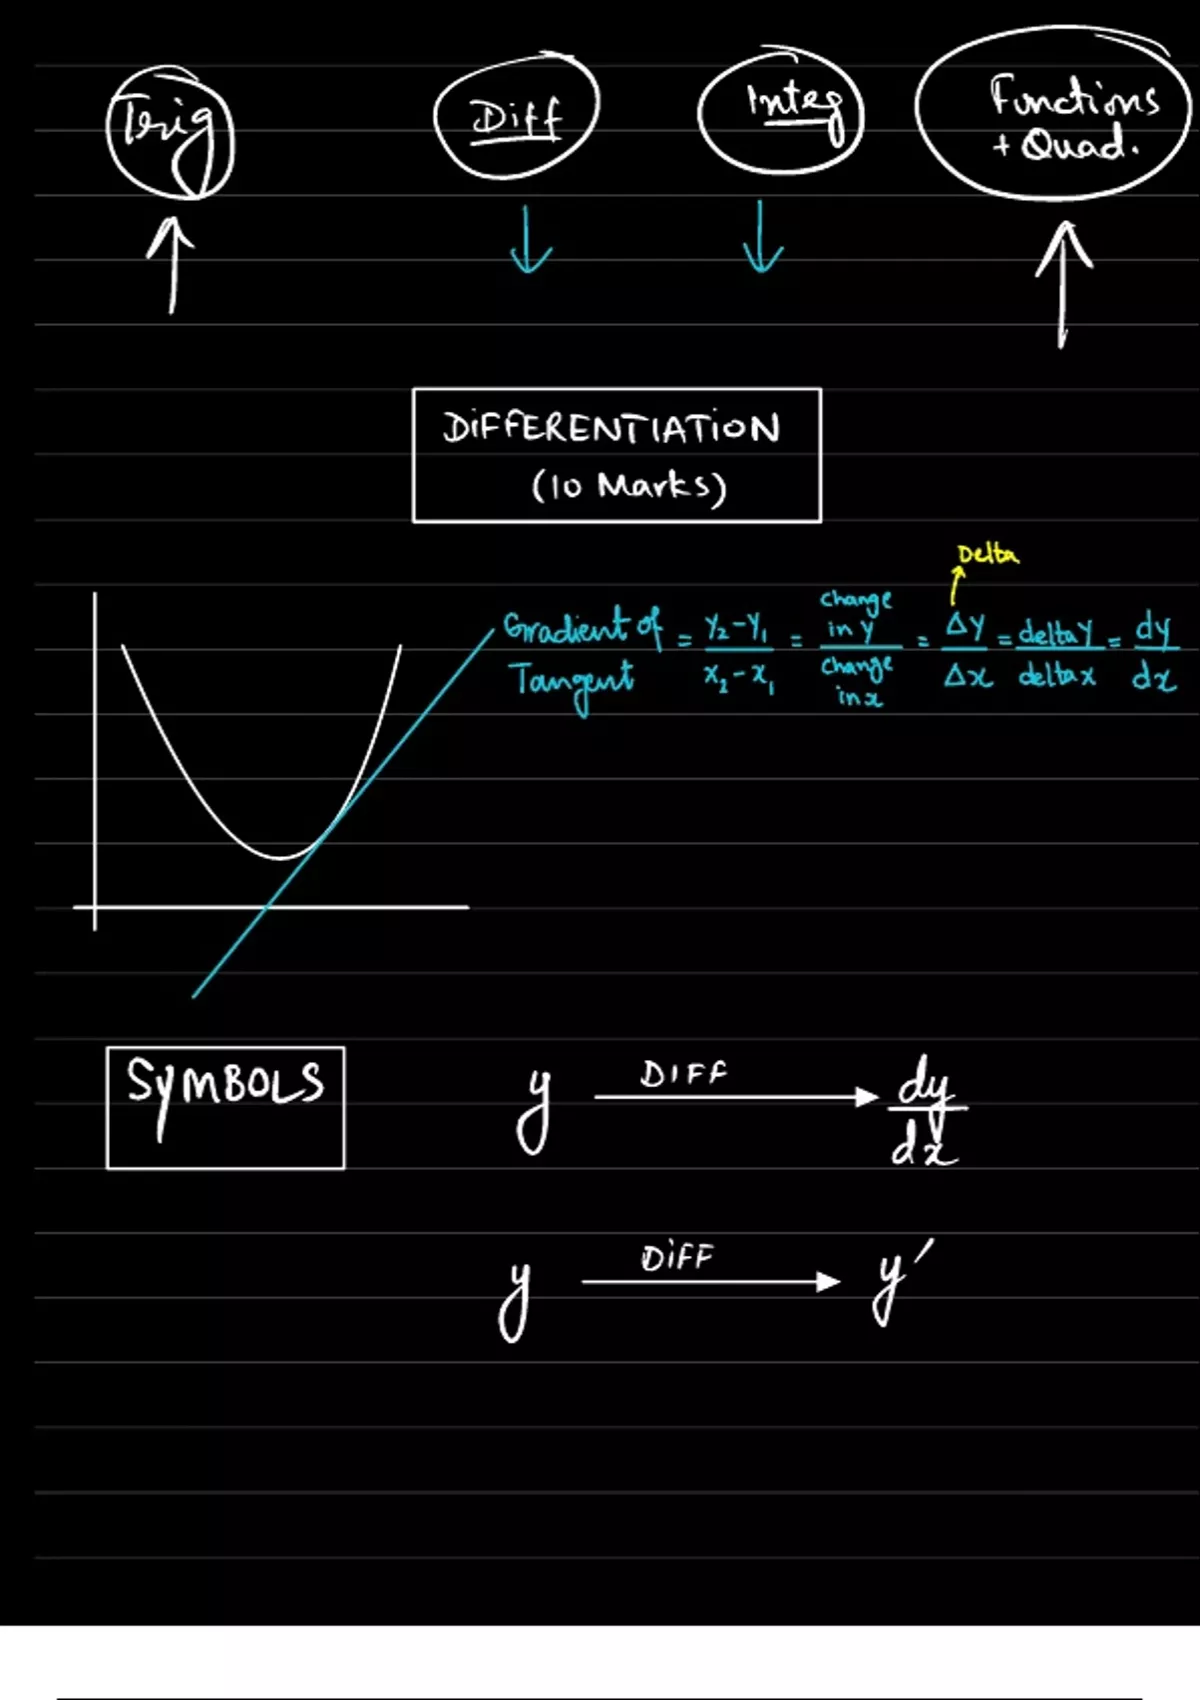 Trig
Diff
Integ
Functions
+ Quad.
DIFFERENTIATION
(10 Marks)
Delta
Gradient of Tangent = y₂-y₁/x₂-x₁ = change in y/change in x = Δy/Δx = delta y/delta x = dy/dx
SYMBOLS
y DIFF dy/dx
y DIFF y′